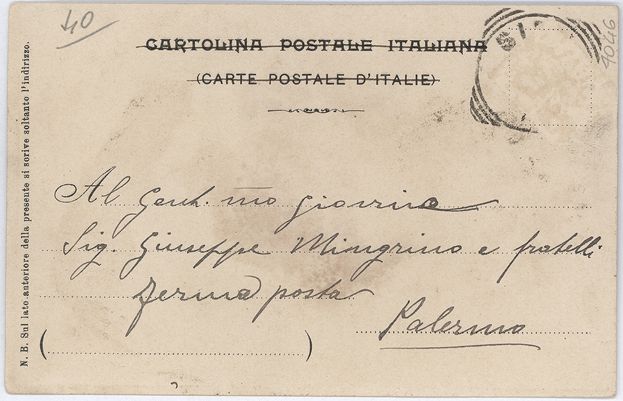 40
4046
CARTOLINA POSTALE ITALIANA
(CARTE POSTALE D'ITALIE)
N. B. Sul lato anteriore della presente si scrive soltanto l'indirizzo.
Al Gent.mo giovine
Sig. Giuseppe Mingrino e fratelli
ferma posta
Palermo